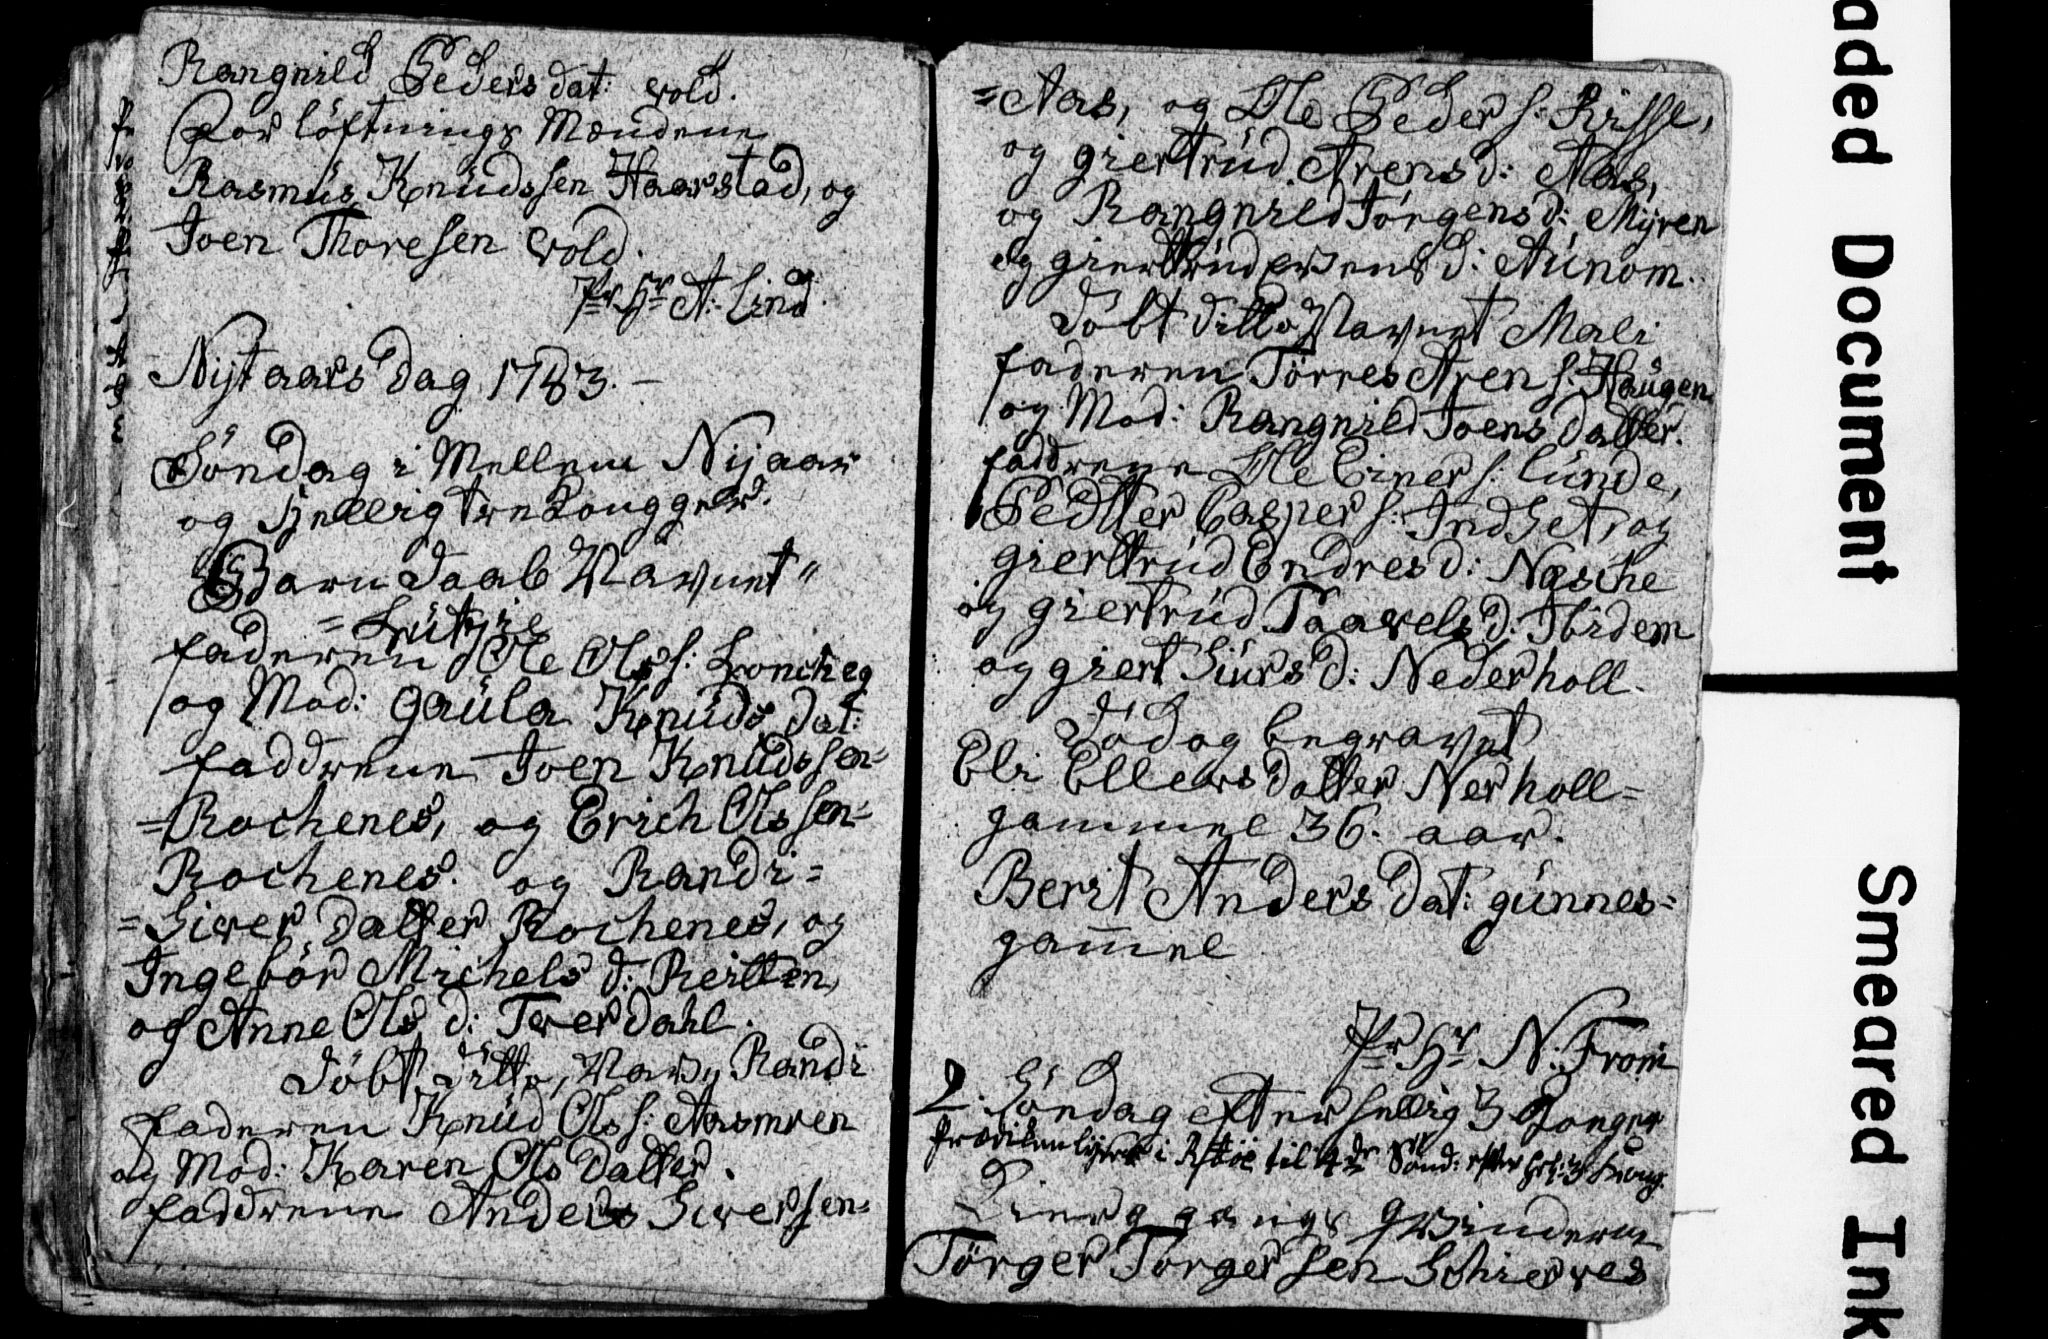 Rangnild Peders dat: wold.
For löftnings Mændene
Rasmus Knüdssen Haarstad, og
Joen Thoresen wold.
Pr Hr A: Lind
Nijtaars dag 1783. –
Söndag i Mellem Nijaar
og Hellig tre Konger.
Barn Daab Navnet "
= Lützie
faderen Ole Ols s: Loncheg
og Mod: gaüla Knüds dat:
faddrene Joen Knüdssen=
=Rochenes, og Erich Olssen=
Rochenes. og Randi=
=Siver datter Rochenes, og
Ingebör Michels d: Reitten,
og Anne Ols d: Twerdahl.
Döbt ditto, Navn Randi
faderen Knüd Ols s: Aasmren
og Mod: Karen Ols datter.
faddrene Anders Siversen=
=Aas, og Ole Peder s: Risse,
og giertrüd Arens d: Aas,
og Rangnild Jörgens d: Myren
og giertrüd Iwens d: Aünom.
Döbt ditto Navnet Mali
faderen Törres Aren s: Haügen
og Mod: Rangnild Joens datter.
faddrene Ole Einer s: lünde,
Pedtter Casper s: Indset, og
giertrüd Endres d: Næsche
og giertrüd Paavels d: Ibidem
og giert Siurs d: Nederholl.
Död og begravet
Eli Ellers datter Nerholl=
gammel 36. aar.
Berit Anders dat: günnes=
gam̄el
Pr Hr N: From
2. Söndag efter hellig 3 Konger
Prædiken til 4de Sönd: efter hel: 3 Kong.
Kierkgangs Qvinderne
Törger Torgersen Schierves